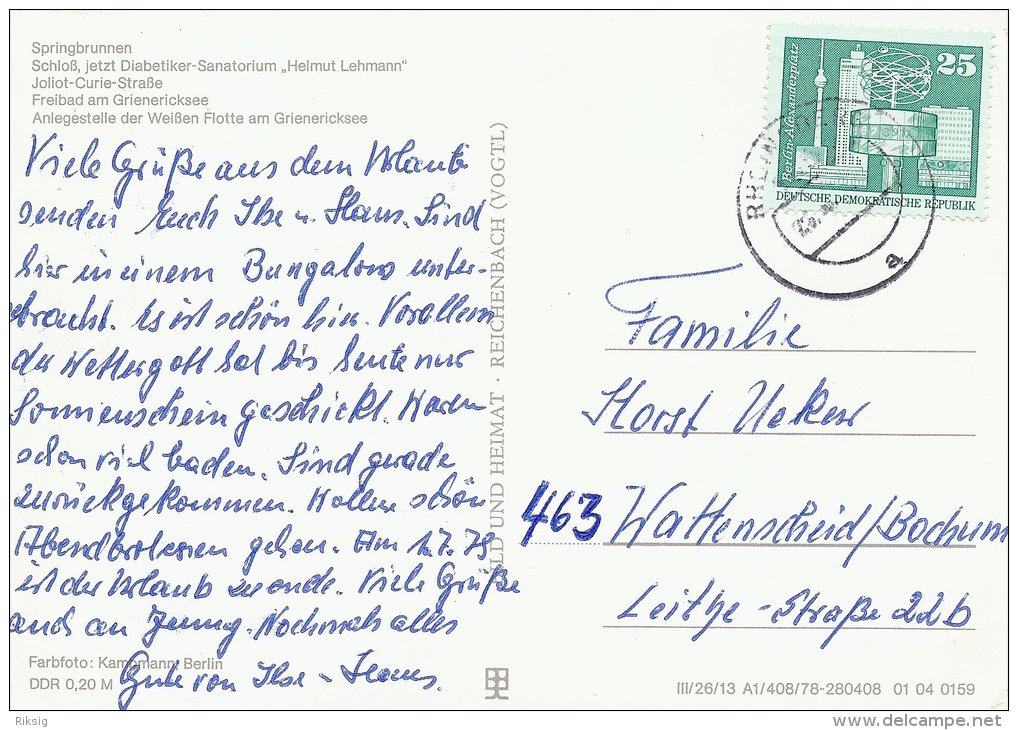 Springbrunnen
Schloß, jetzt Diabetiker-Sanatorium „Helmut Lehmann“
Joliot-Curie-Straße
Freibad am Grienericksee
Anlegestelle der Weißen Flotte am Grienericksee
Viele Grüße aus dem Urlaub
senden Euch Ilse u. Hans. Sind
hier in einem Bungalow unter-
gebracht. Es ist schön hier. Vorallem
der Wettergott hat bis heute nur
Sonnenschein geschickt. Waren
schon viel baden. Sind gerade
zurückgekommen. Wollen schön
Abendbrotessen gehen. Am 1.7.79
ist der Urlaub zu ende. Viele Grüße
auch an Jenny. Nochmals alles
Gute von Ilse - Hans.
Farbfoto: Kampmann, Berlin
DDR 0,20 M
BILD UND HEIMAT · REICHENBACH (VOGTL)
25
Berlin-Alexanderplatz
DEUTSCHE DEMOKRATISCHE REPUBLIK
a
Familie
Horst Ueker
463 Wattenscheid/Bochum
Leithe-Straße 22b
III/26/13 A1/408/78-280408 01 04 0159
Riksig
www.delcampe.net